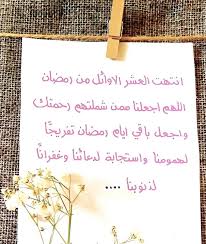 انتهت العشر الاوائل من رمضان
اللهم اجعلنا ممن شملتهم رحمتك
واجعل باقي ايام رمضان تفريجًا
لهمومنا واستجابة لدعائنا وغفرانًا
لذنوبنا ....